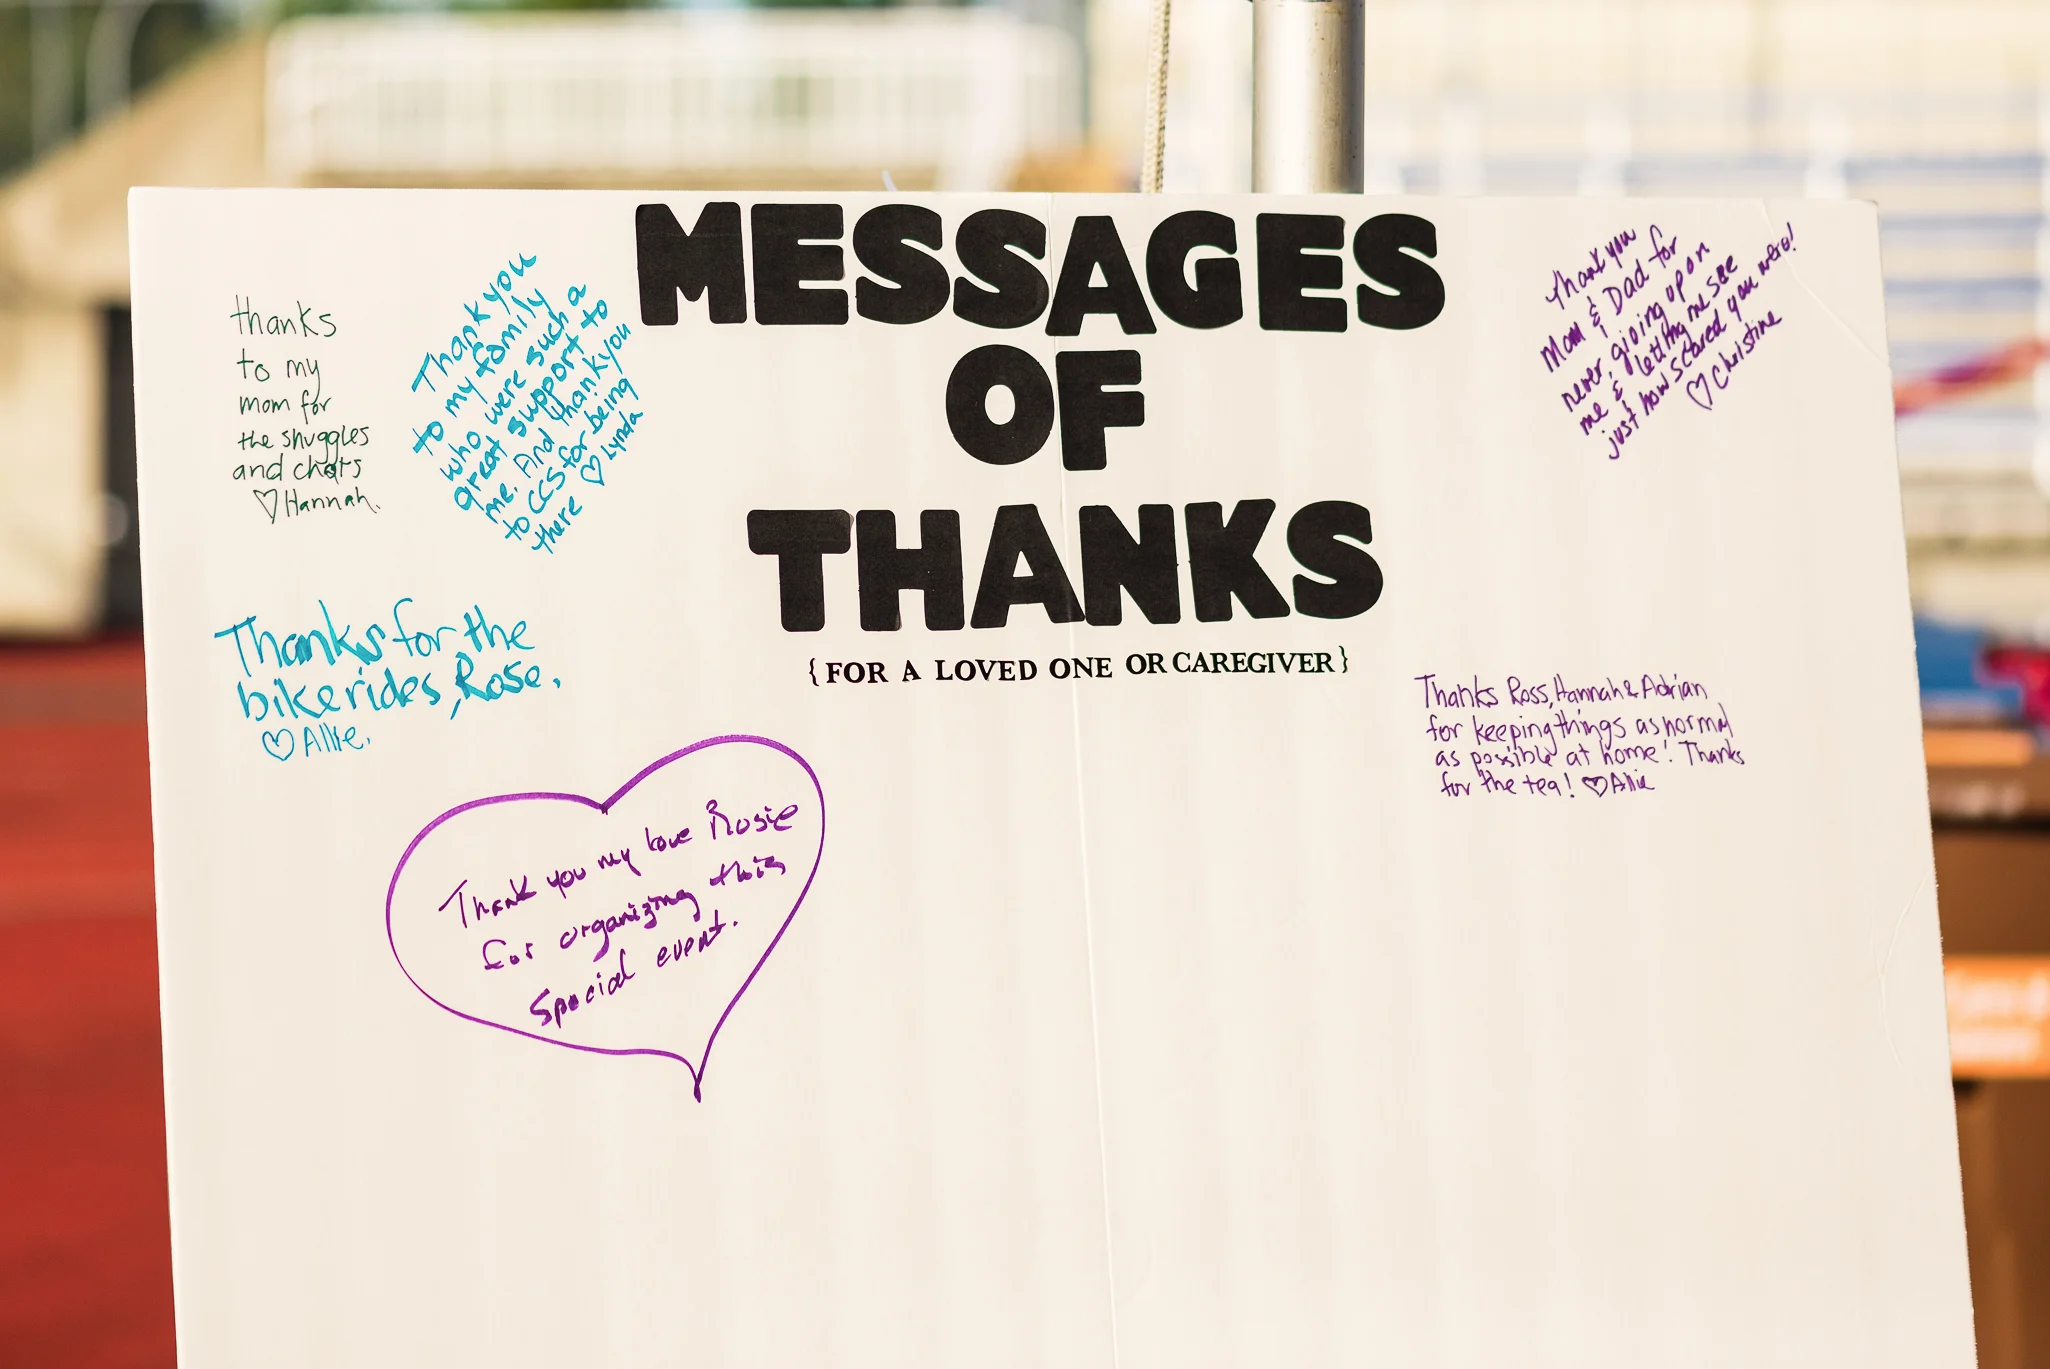 MESSAGES
OF
THANKS
{FOR A LOVED ONE OR CAREGIVER}
thanks
to my
mom for
the snuggles
and chats
♡Hannah.
Thank you
to my family
who were such a
great support to
me. And thankyou
to CCS for being
there ♡ Lynda
Thank you
Mom & Dad for
never giving up on
me & letting me see
just how scared you were!
♡Christine
Thanks for the
bike rides, Rose.
♡Allie.
Thanks Ross, Hannah & Adrian
for keeping things as normal
as possible at home! Thanks
for the tea! ♡Allie
Thank you my love Rosie
for organizing this
special event.